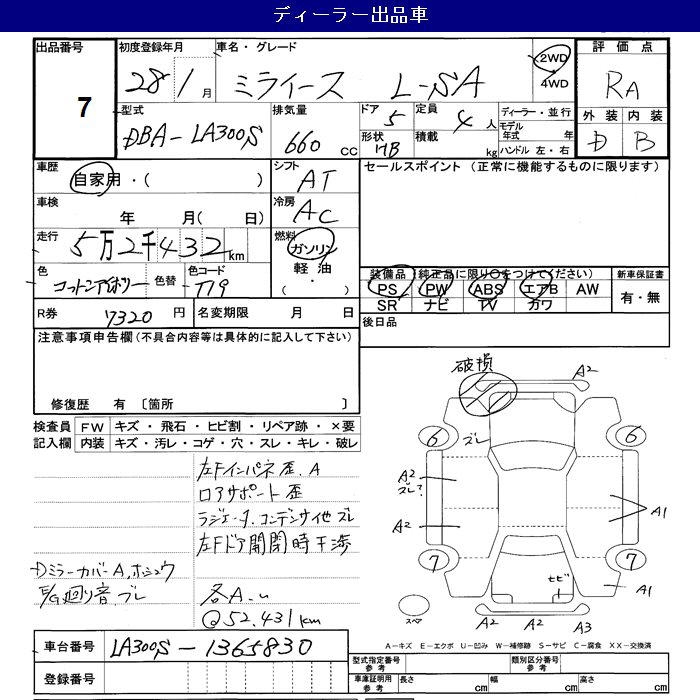 ディーラー出品車
出品番号
7
初度登録年月
28 / 1 月
車名・グレード
ミライース L-SA
2WD
4WD
評価点
RA
外装 内装
D B
型式
DBA-LA300S
排気量
660 cc
ドア 5
形状 HB
定員 4 人
積載 kg
ディーラー・並行
モデル年式 年
ハンドル 左・右
車歴
自家用・( )
シフト
AT
セールスポイント (正常に機能するものに限ります)
車検
年 月( 日)
冷房
AC
走行
5万2千432km
燃料
ガソリン
軽油
・
色
コットンアイボリー
色替
色コード
T19
装備品 (純正品に限り○をつけてください)
PS PW ABS エアB AW
SR ナビ TV カワ
新車保証書
有・無
R券 7320 円
名変期限 月 日
後日品
注意事項申告欄(不具合内容等は具体的に記入して下さい)
修復歴 有 〔箇所 〕
検査員記入欄
FW キズ・飛石・ヒビ割・リペア跡・×要
内装 キズ・汚レ・コゲ・穴・スレ・キレ・破レ
左Fインパネ歪、A
ロアサポート歪
ラジエータ、コンデンサ他ズレ
左Fドア開閉時干渉
DミラーカバーA、ホシュウ
E/G廻り音、ブレ
各A、u
@52,431km
破損
A2
6
ズレ
6
A2
ズレ?
A2
A1
7
7
ヒビ
A1
スペア
A2 A2 A3
A-キズ E-エクボ U-凹み W-補修跡 S-サビ C-腐食 XX-交換済
車台番号
LA300S-1365830
登録番号
型式指定番号 参考
類別区分番号 参考
車庫証明用 参考
長さ cm
幅 cm
高さ cm